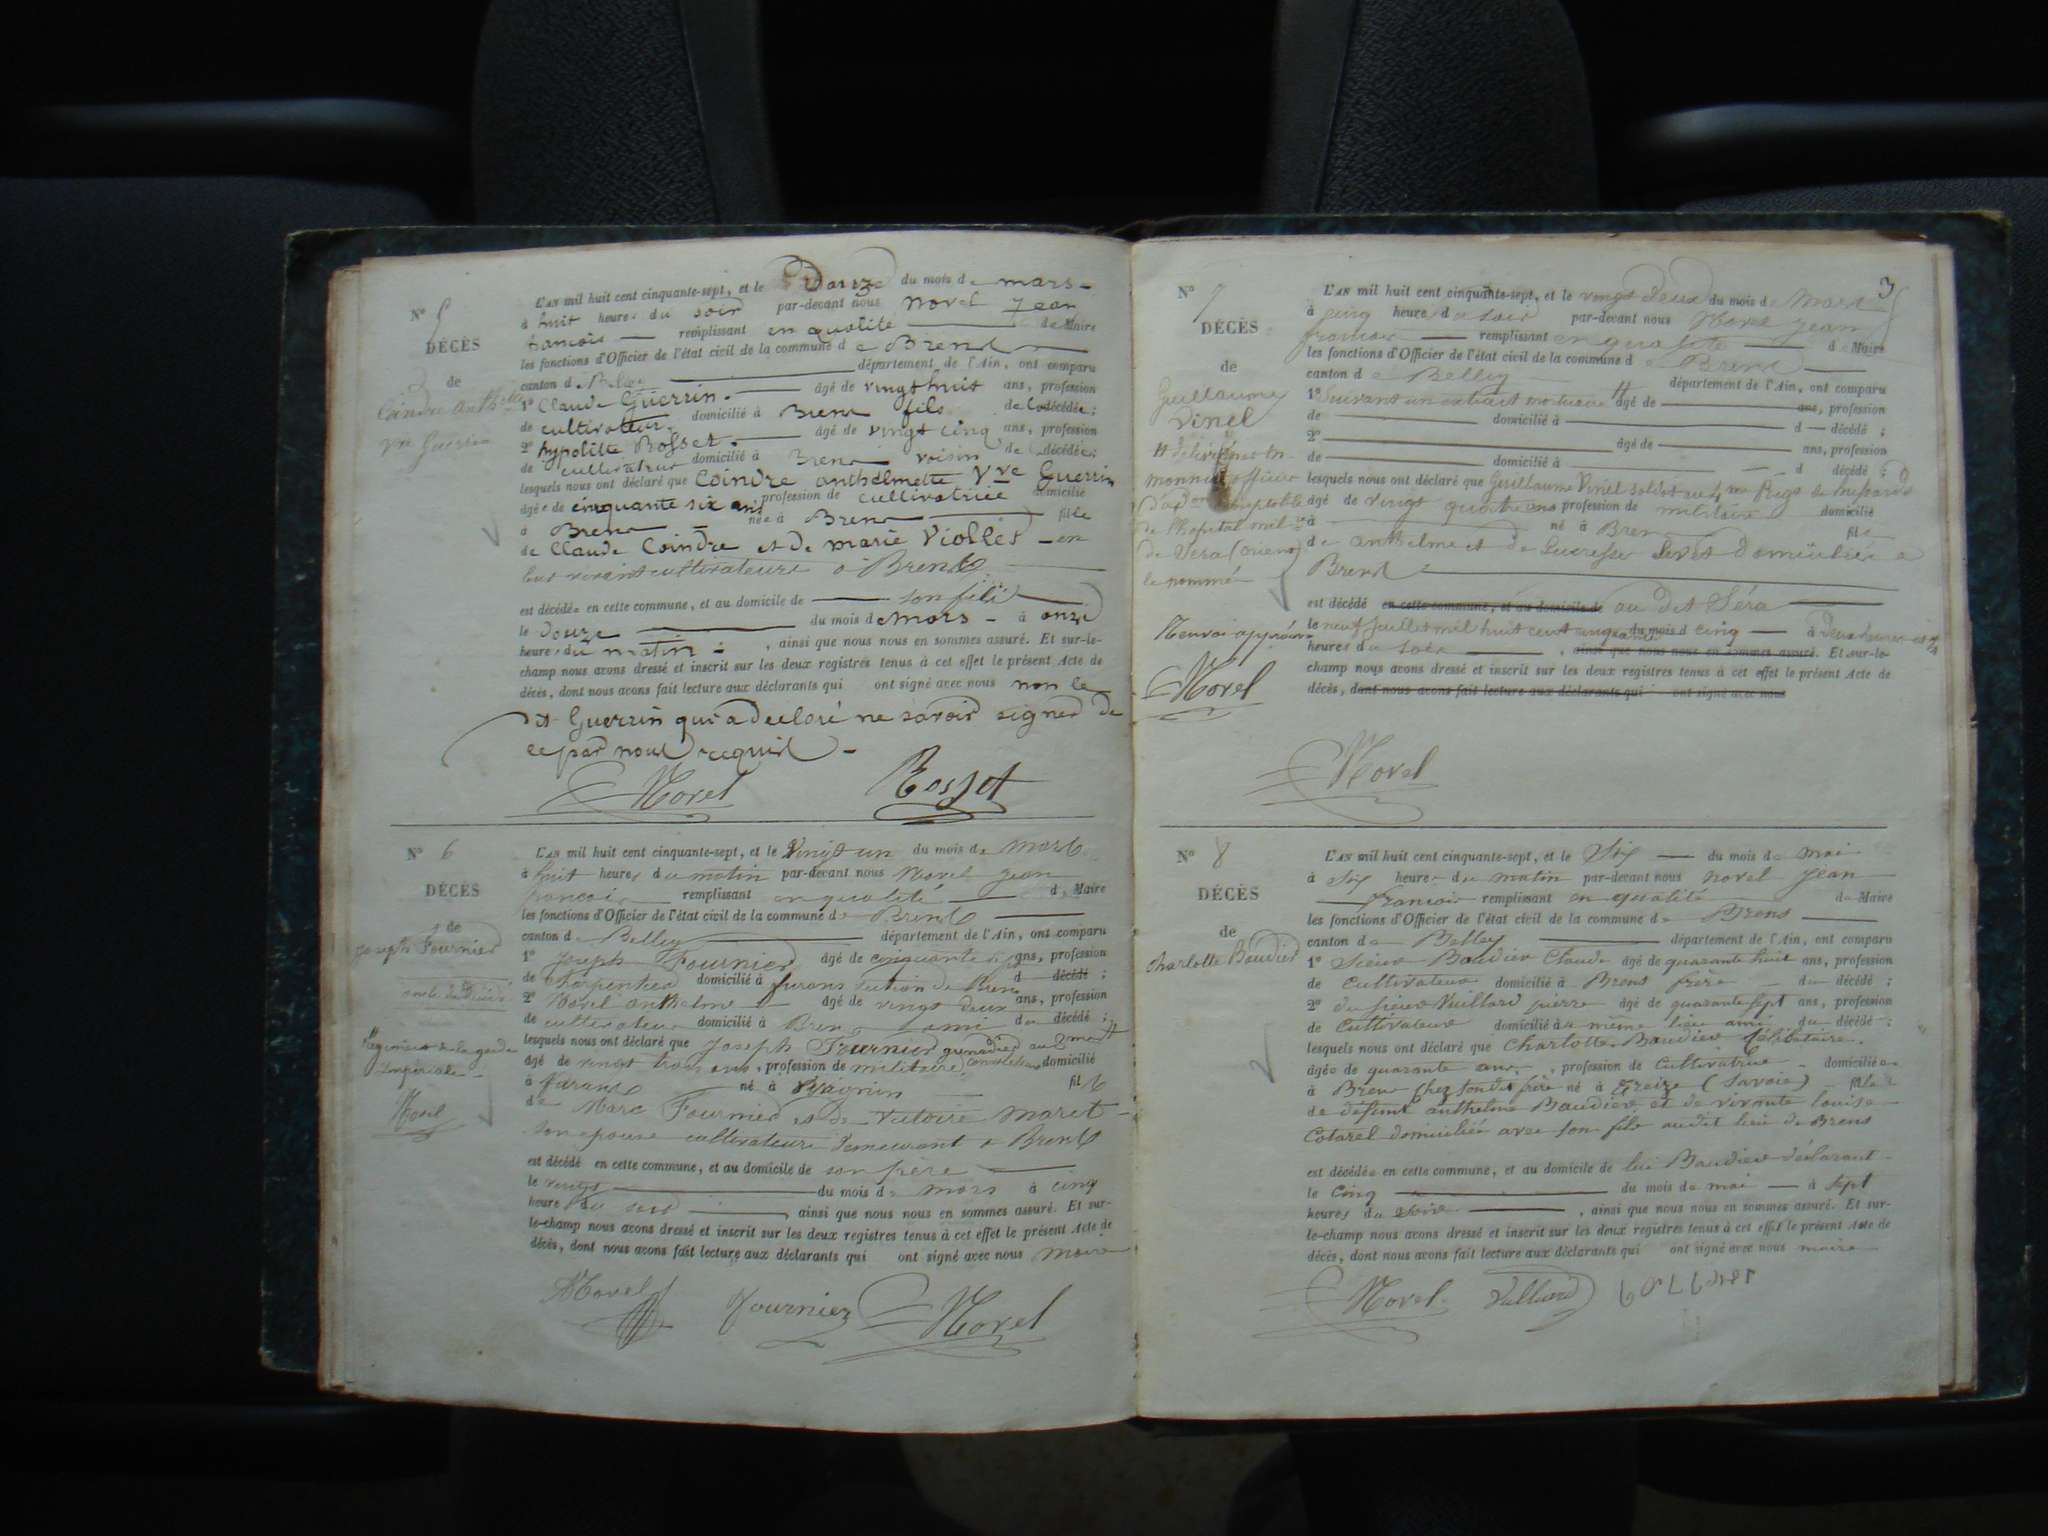 N° 5
DÉCÈS
de
Coindre Anth.
Vve Guerrin
L'AN mil huit cent cinquante-sept, et le Douze du mois de mars
à huit heures du soir par-devant nous Morel Jean
francois remplissant en qualité de Maire
les fonctions d'Officier de l'état civil de la commune de Brens
canton de Belley département de l'Ain, ont comparu
1° Claude Guerrin âgé de vingt huit ans, profession
de cultivateur domicilié à Brens fils de la décédée;
2° hypolitte Rosset âgé de vingt cinq ans, profession
de cultivateur domicilié à Brens voisin de la décédée;
lesquels nous ont déclaré que Coindre anthelmette Vve Guerrin
âgée de cinquante six ans profession de cultivatrice domicilié
à Brens née à Brens fille
de Claude Coindre et de marie Viollet en
leur vivant cultivateurs a Brens
est décédée en cette commune, et au domicile de son fils
le douze du mois de mars à onze
heures du matin, ainsi que nous nous en sommes assuré. Et sur-le-
champ nous avons dressé et inscrit sur les deux registres tenus à cet effet le présent Acte de
décès, dont nous avons fait lecture aux déclarants qui ont signé avec nous non le
dt Guerrin qui a declaré ne savoir signer de
ce par nous requis
Morel Rosset
N° 6
DÉCÈS
de
Joseph Fournier
Regiment de la garde
Imperiale
Morel
L'AN mil huit cent cinquante-sept, et le Vingt un du mois de mars
à huit heures du matin par-devant nous Morel jean
francois remplissant en qualité de Maire
les fonctions d'Officier de l'état civil de la commune de Brens
canton de Belley département de l'Ain, ont comparu
1° Joseph Fournier âgé de cinquante ans, profession
de charpentier domicilié à furans section de Brens d décédé;
2° Morel anthelme âgé de vingt deux ans, profession
de cultivateur domicilié à Brens ami du décédé;
lesquels nous ont déclaré que Joseph Fournier grenadier au 2me
âgé de vingt trois ans, profession de militaire, domicilié
à furans né à fils
de Marc Fournier et de victoire moret
son epouse cultivateurs demeurant a Brens
est décédé en cette commune, et au domicile de son père
le vingt du mois de mars à cinq
heures du soir, ainsi que nous nous en sommes assuré. Et sur-
le-champ nous avons dressé et inscrit sur les deux registres tenus à cet effet le présent Acte de
décès, dont nous avons fait lecture aux déclarants qui ont signé avec nous maire
Morel Fournier Morel
3
N° 7
DÉCÈS
de
Guillaume
Vinel
de l'hopital mil.re
le nommé
Renvoi approuvé
Morel
L'AN mil huit cent cinquante-sept, et le vingt deux du mois de Mars
à cinq heures du soir par-devant nous Morel jean
francois remplissant en qualité de Maire
les fonctions d'Officier de l'état civil de la commune de Brens
canton de Belley département de l'Ain, ont comparu
1° Suivant un extrait mortuaire # âgé de ans, profession
de domicilié à d décédé;
2° âgé de ans, profession
de domicilié à d décédé;
lesquels nous ont déclaré que Guillaume Vinel soldat au
âgé de vingt quatre ans profession de militaire domicilié
à né à Brens fils
de anthelme et de domiciliés a
Brens
est décédé en cette commune, et au domicile de au dit Séra
le neuf juillet mil huit cent cinquante du mois d cinq à deux heures
heures du soir, ainsi que nous nous en sommes assuré. Et sur-le-
champ nous avons dressé et inscrit sur les deux registres tenus à cet effet le présent Acte de
décès, dont nous avons fait lecture aux déclarants qui ont signé avec nous
Morel
N° 8
DÉCÈS
de
Charlotte Baudier
L'AN mil huit cent cinquante-sept, et le Six du mois de mai
à Six heures du matin par-devant nous Morel Jean
Francois remplissant en qualité de Maire
les fonctions d'Officier de l'état civil de la commune de Brens
canton de Belley département de l'Ain, ont comparu
1° Sieur Baudier Claude âgé de quarante huit ans, profession
de Cultivateur domicilié à Brens frère du décédé;
2° du sieur Vuillard pierre âgé de quarante sept ans, profession
de Cultivateur domicilié à même lieu ami du décédé;
lesquels nous ont déclaré que Charlotte Baudier Célibataire
âgée de quarante ans, profession de Cultivatrice domiciliée
à Brens chez son dit frère né à (Savoie) fille
de défunt anthelme Baudier et de vivante louise
Cotarel domiciliée avec son fils audit lieu de Brens
est décédée en cette commune, et au domicile de lui Baudier déclarant
le Cinq du mois de mai à sept
heures du soir, ainsi que nous nous en sommes assuré. Et sur-
le-champ nous avons dressé et inscrit sur les deux registres tenus à cet effet le présent Acte de
décès, dont nous avons fait lecture aux déclarants qui ont signé avec nous maire
Morel Vuillard